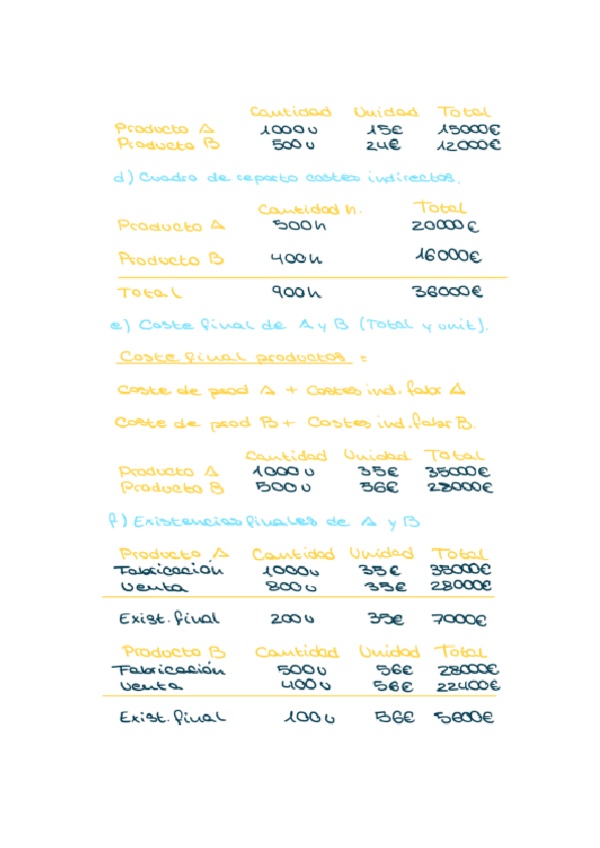 Cantidad Unidad Total
Producto A 1000u 15€ 15000€
Producto B 500u 24€ 12000€
d) Cuadro de reparto costes indirectos.
Cantidad h. Total
Producto A 500h 20000€
Producto B 400h 16000€
Total 900h 36000€
e) Coste final de A y B (Total y unit).
Coste final productos =
Coste de prod A + Costes ind. fabr A
Coste de prod B + Costes ind. fabr B.
Cantidad Unidad Total
Producto A 1000u 35€ 35000€
Producto B 500u 56€ 28000€
f) Existencias finales de A y B
Producto A Cantidad Unidad Total
Fabricación 1000u 35€ 35000€
Venta 800u 35€ 28000€
Exist. final 200u 35€ 7000€
Producto B Cantidad Unidad Total
Fabricación 500u 56€ 28000€
Venta 400u 56€ 22400€
Exist. final 100u 56€ 5600€